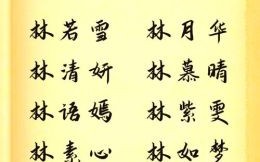 林若雪 林月华
林清妍 林慕晴
林语嫣 林紫雯
林素心 林如梦